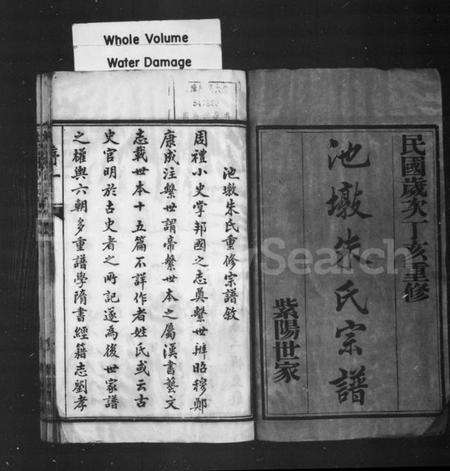 Whole Volume
Water Damage
民國歲次丁亥重修
池墩朱氏宗譜
紫陽世家
池墩朱氏重修宗譜敘
周禮小史掌邦國之志奠繫世辨昭穆鄭
康成注繫世謂帝繫世本之屬漢書藝文
志載世本十五篇不詳作者姓氏或云古
史官明於古史者之所記遂為後世家譜
之權輿六朝多重譜學隋書經籍志劉孝
Search